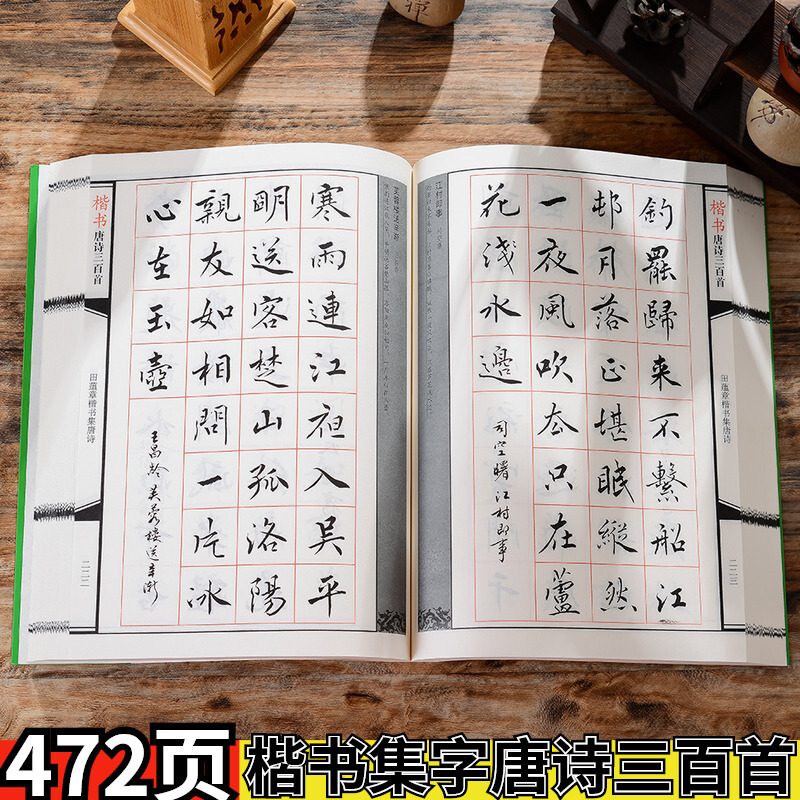 楷书唐诗三百首
田蕴章楷书集唐诗
二二二
芙蓉楼送辛渐
寒雨連江夜入吴平
明送客楚山孤洛陽
親友如相問一片冰
心在玉壺
王昌龄 芙蓉樓送辛漸
楷书唐诗三百首
田蕴章楷书集唐诗
二二三
江村即事 司空曙
釣罷歸來不繫船江
邨月落正堪眠縱然
一夜風吹去只在蘆
花淺水邊
司空曙 江村即事
472页 楷书集字唐诗三百首